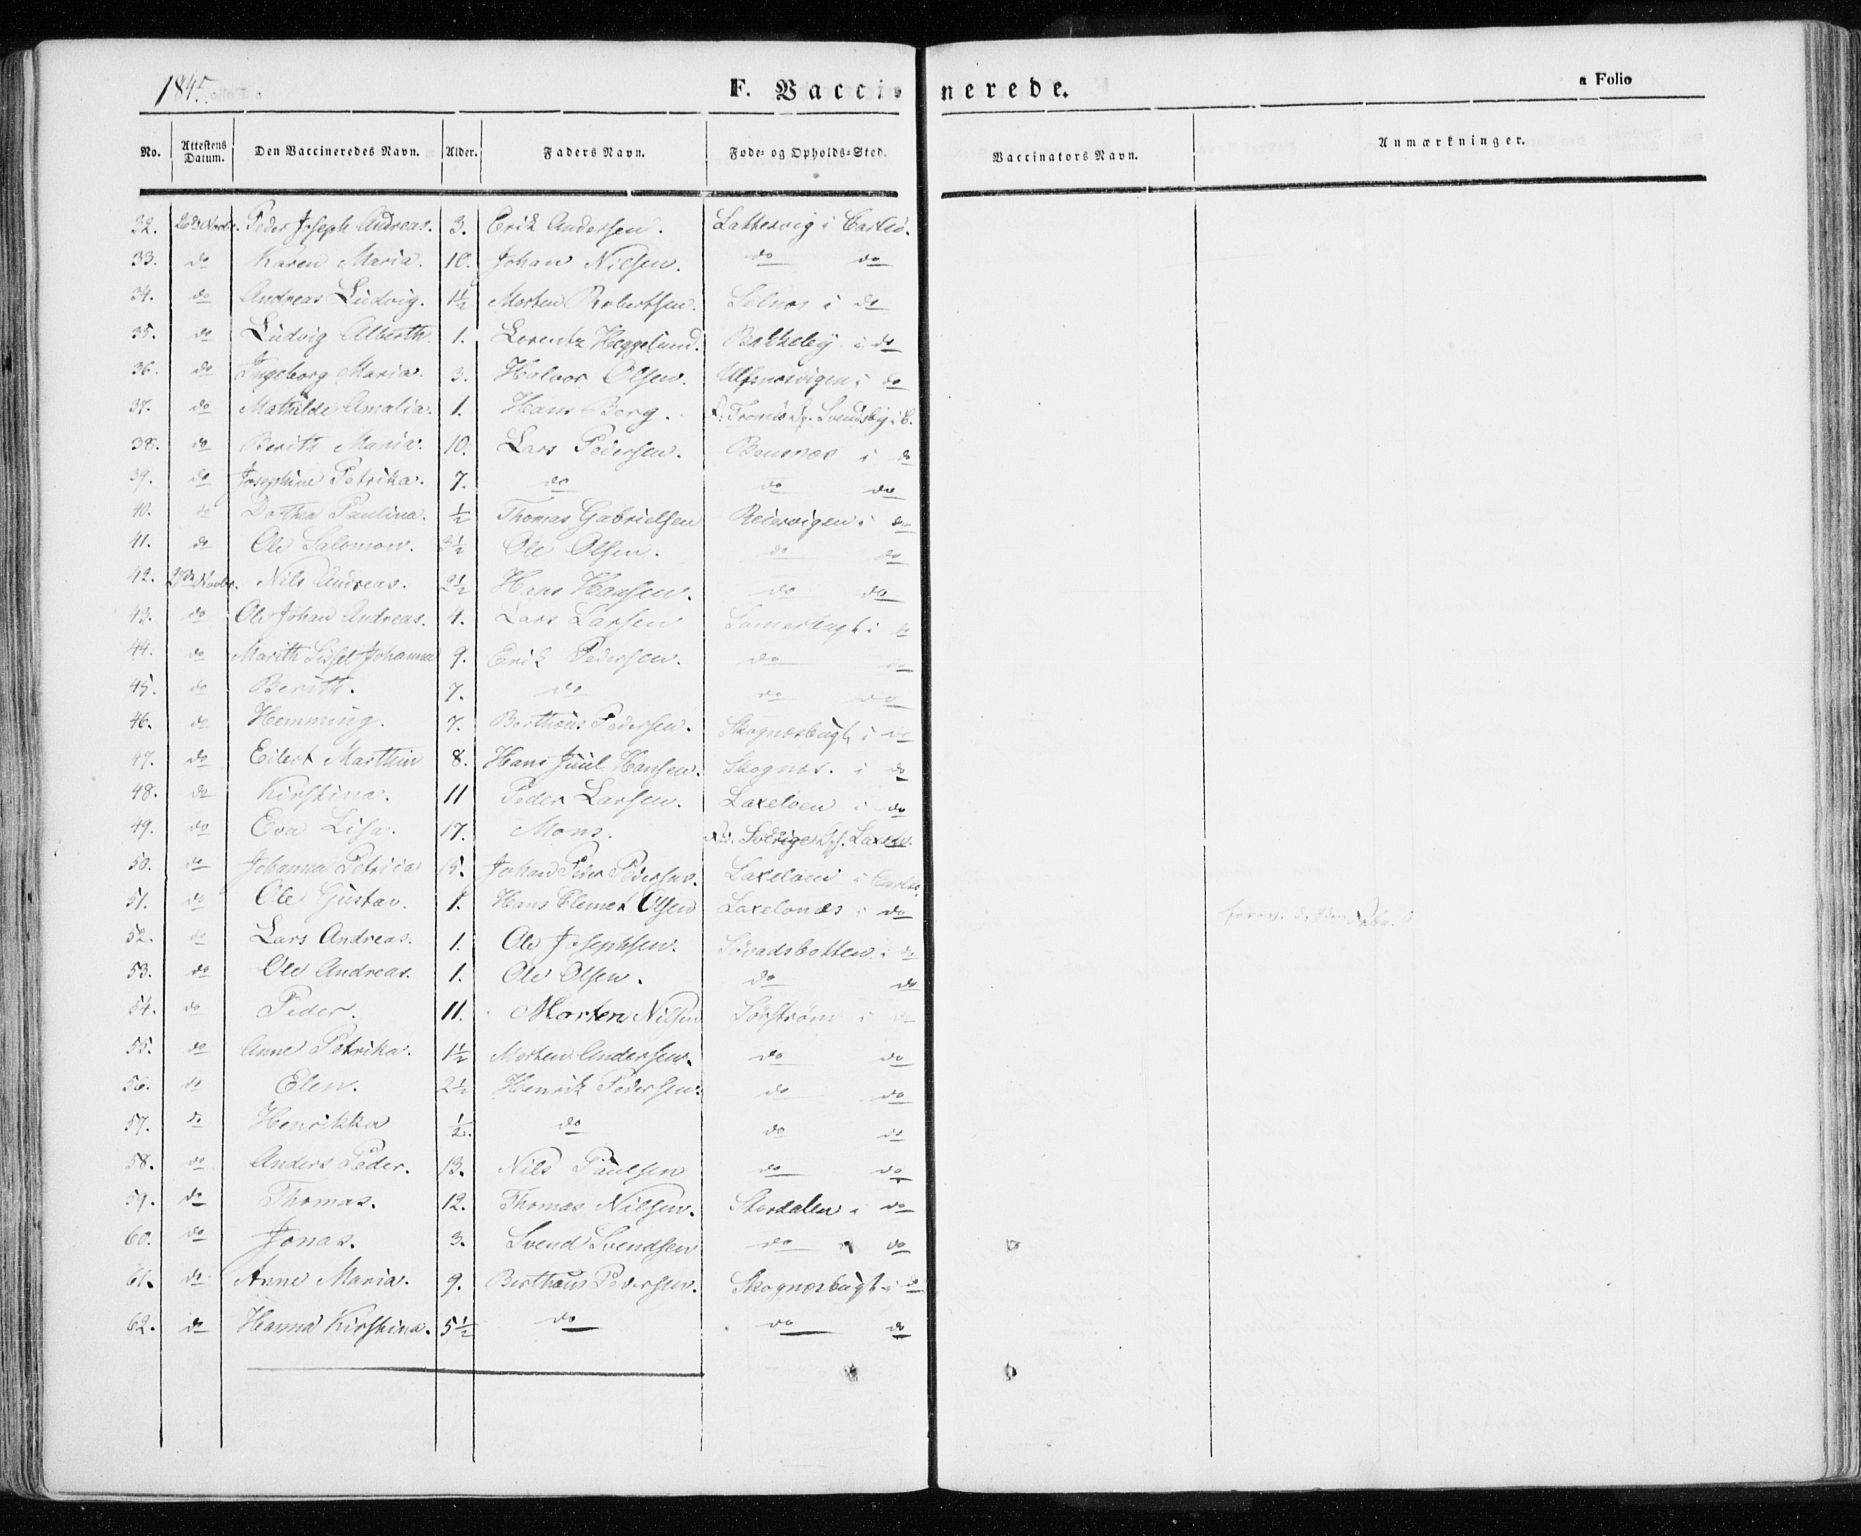 1845. F. Vaccinerede. a Folio
No. Attestens Datum. Den Vaccineredes Navn. Alder. Faders Navn. Føde- og Opholds-Sted. Vaccinators Navn. Anmærkninger.
32. 26de Novbr. Peder Joseph Andreas. 3. Erik Andersen. Lattervig i Carlsø.
33. do Karen Maria. 10. Johan Nilsen. do do
34. do Andreas Ludvig. 1½ Morten Robertsen. Selnæs i do
35. do Ludvig Alberth. 1. Lorentz Heggelund. Bakkeby i do
36. do Ingeborg Maria. 3. Halvor Olsen. Ulfsnesvigen i do
37. do Mathilde Amalia. 1. Hans Berg. F. i Tromsø Op. Svendsby i C.
38. do Berith Maria. 10. Lars Pedersen. Bensnæs i do
39. do Josephine Petrika. 7. do do do
40. do Dorthea Paulina. ½ Thomas Gabrielsen Reiervigen i do
41. do Ole Salomon. 3½ Ole Olsen. do do
42. 27de Novbr. Nils Andreas. 2½ Hans Hansen. do do
43. do Ole Johan Andreas. 4. Lars Larsen Somerbugt i do
44. do Marith Sissel Johanna 9. Erik Pedersen. do do
45. do Berith. 7. do do do
46. do Hemming. 7. Bertheus Pedersen. Skognæsbugt i do
47. do Eilert Marthin 8. Hans Juul Hansen. Skognæs. i do
48. do Kirstina. 11 Peder Larsen. Laxeloen i do
49. do Eva Lisa. 17. Mons. F. i Sverige Op. i Laxelv.
50. do Johanna Petricia 15. Johan Peder Pedersen. Laxeloen i Carlsø.
51. do Ole Gustav. 1. Hans Clemet Olsen Laxelvnæs i do
52. do Lars Andreas. 1. Ole Josephsen. Sövadsbotten i do
53. do Ole Andreas. 1. Ole Olsen. do do
54. do Peder. 11. Morten Nilsen Sørstrøm i do
55. do Anne Petrika. 1½ Morten Andersen. do do
56. do Elen. 2½ Henrik Pedersen. do do
57. do Henrikka ½. do do do
58. do Anders Peder. 13. Nils Paulsen do do
59. do Thomas. 12. Thomas Nilsen. Stordalen i do
60. do Jonas. 3. Svend Svendsen do do
61. do Anne Maria. 9. Berthæus Pedersen. Skognæsbugt i do
62. do Hanna Kirstina. 5½ do do do